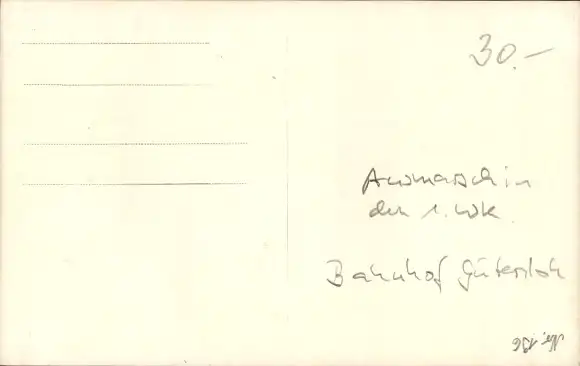 30.-
Ausmarsch in
den 1. WK
Bahnhof Gütersloh